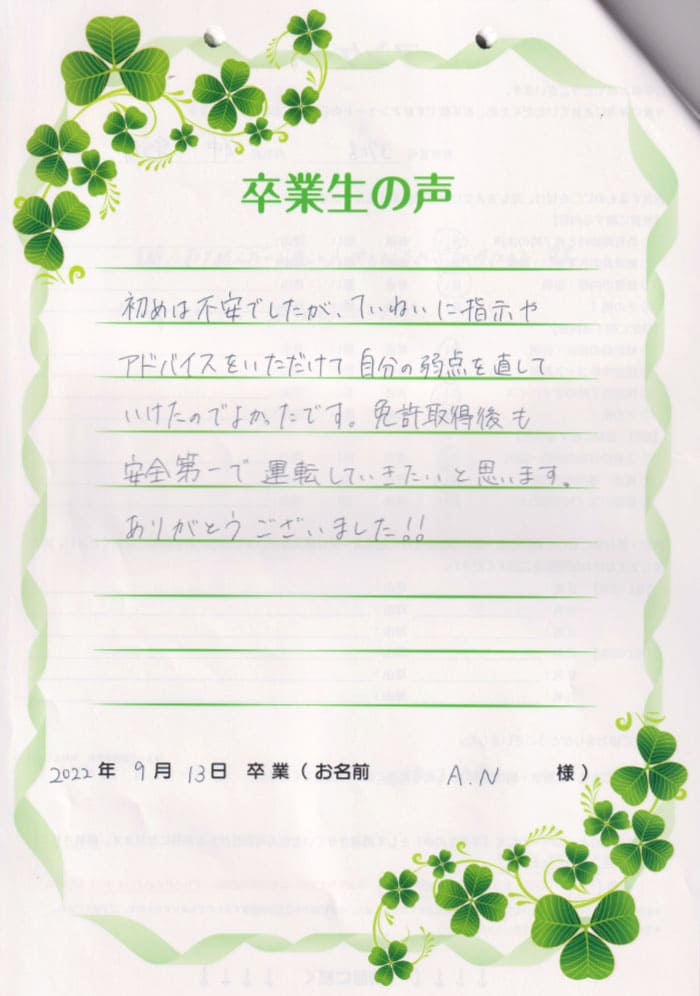 卒業生の声
初めは不安でしたが、ていねいに指示や
アドバイスをいただけて自分の弱点を直して
いけたのでよかったです。免許取得後も
安全第一で運転していきたいと思います。
ありがとうございました!!
2022年 9月 13日 卒業(お名前 A.N 様)